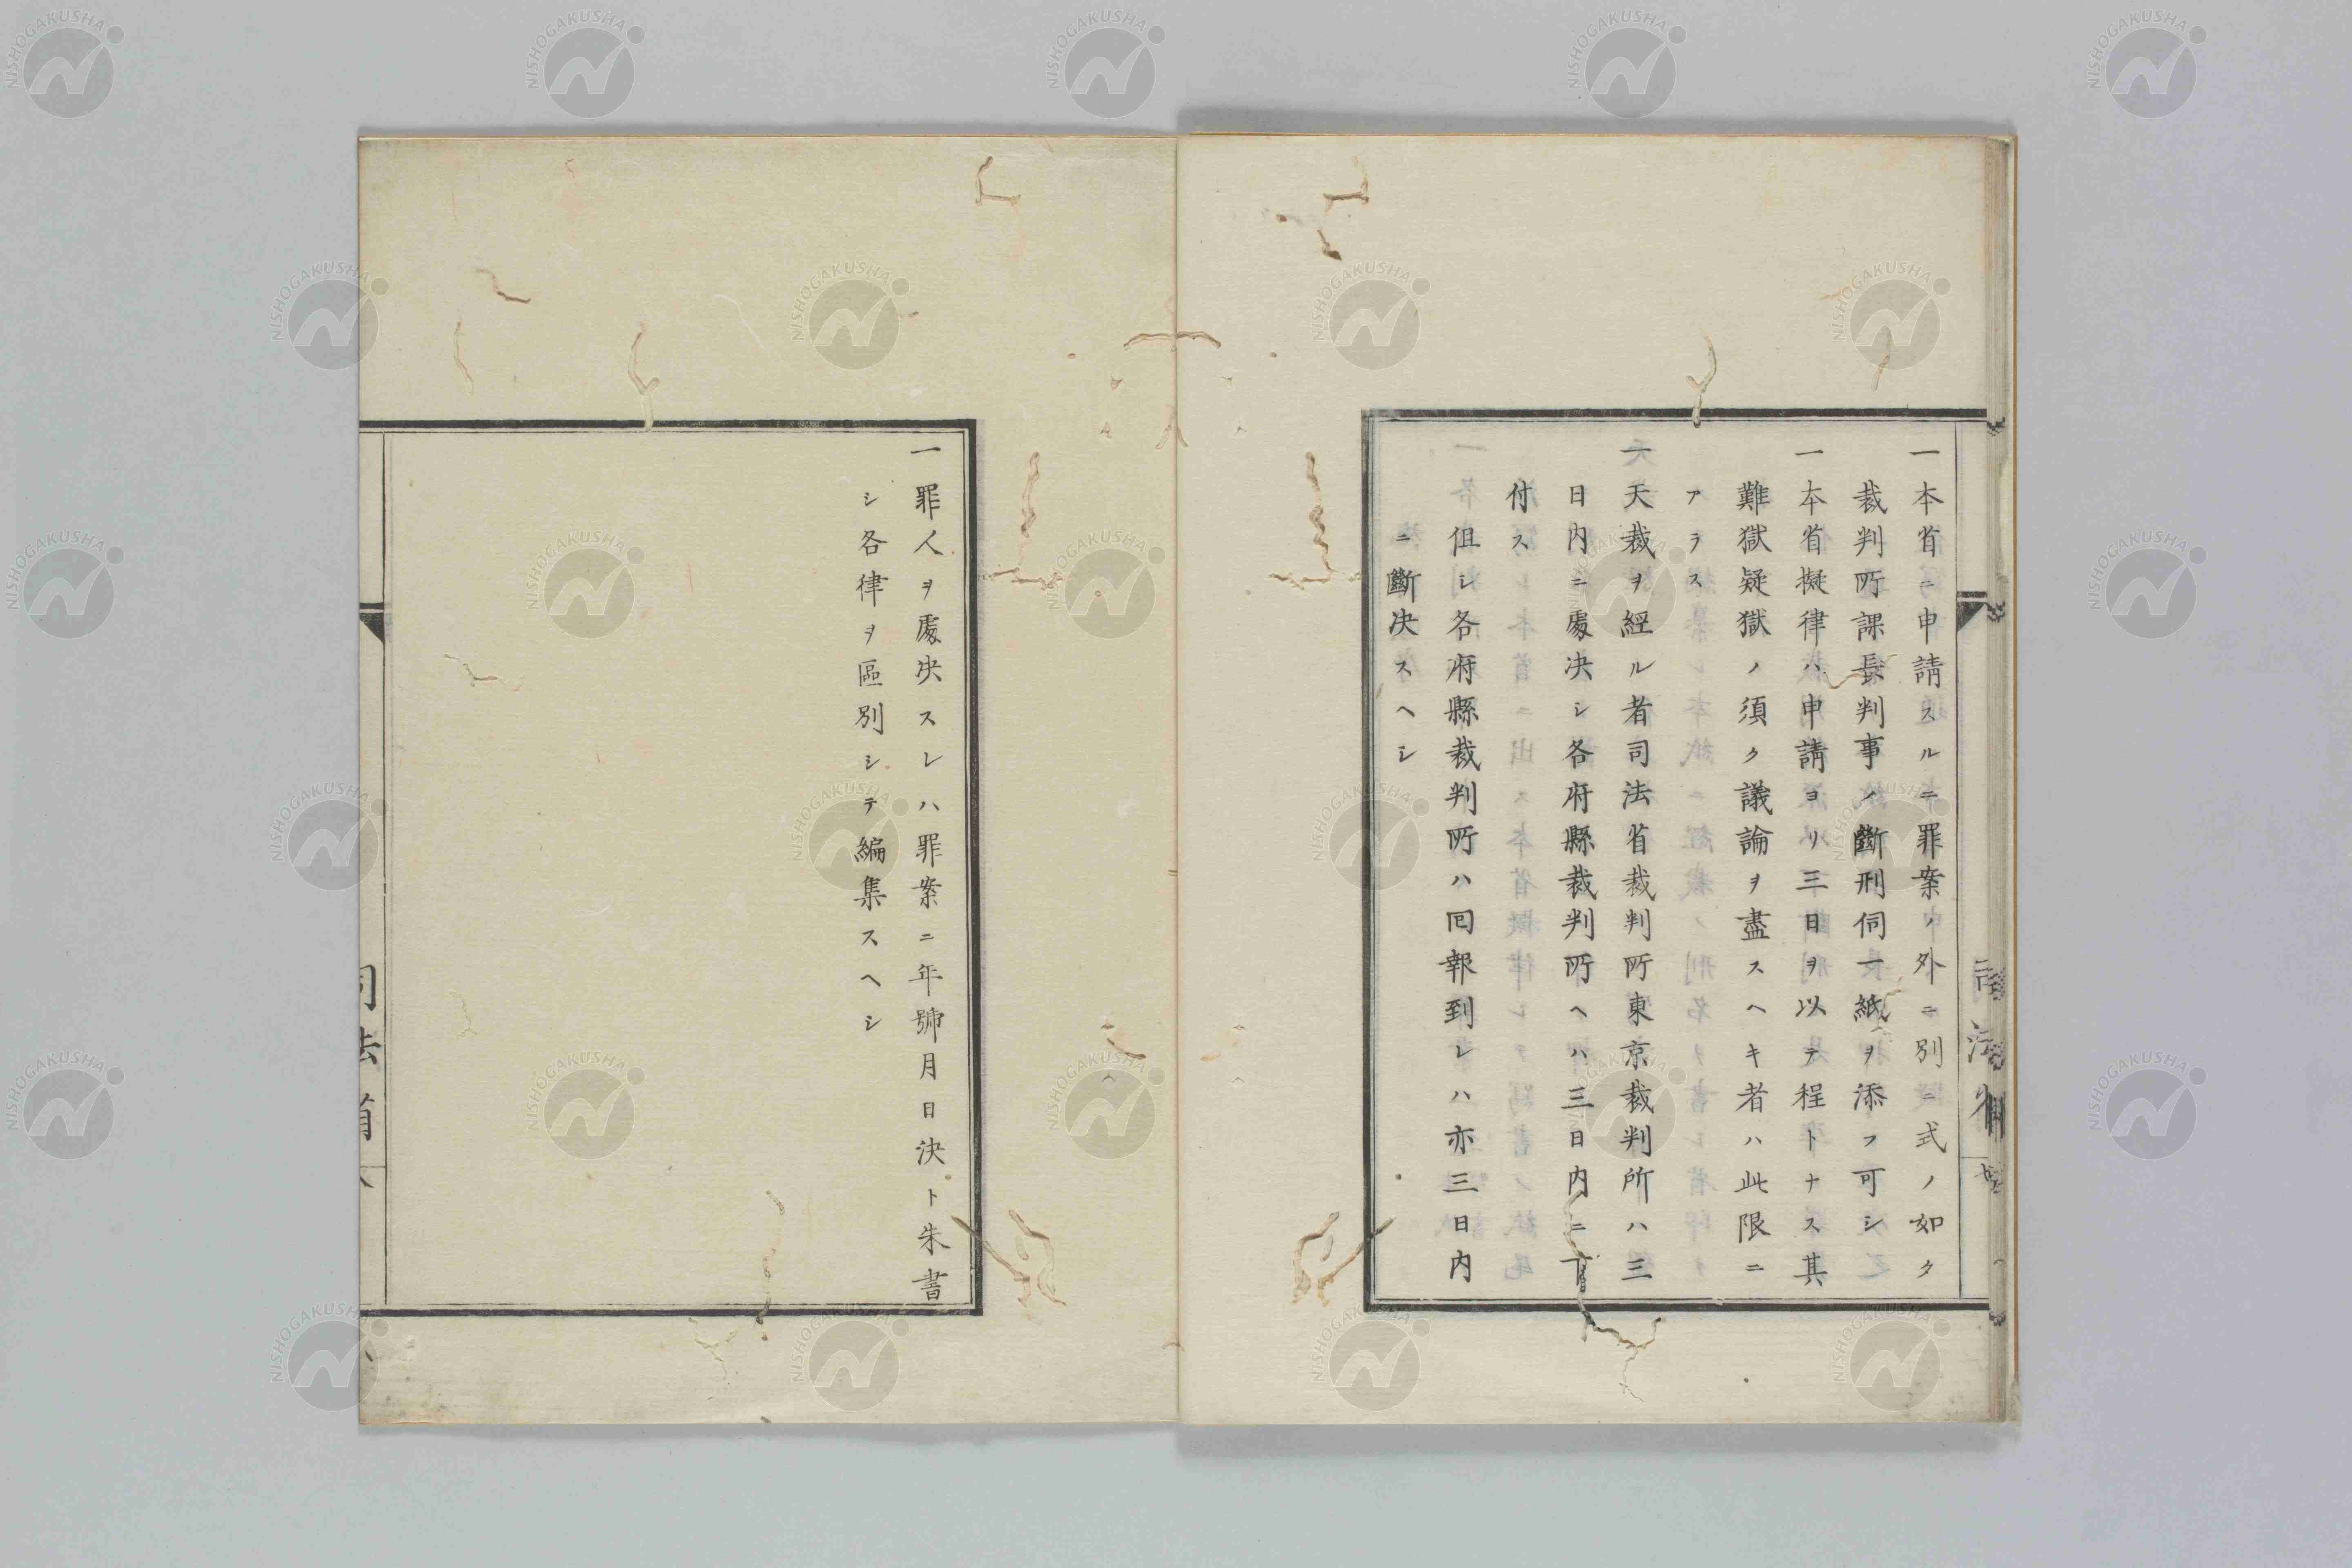 一本省ニ申請スルニ罪案ノ外ニ別ニ式ノ如ク
裁判所課長判事ノ斷刑伺一紙ヲ添フ可シ
一本省擬律ハ申請ヨリ三日ヲ以テ程トナス其
難獄疑獄ノ須ク議論ヲ盡スヘキ者ハ此限ニ
アラス
一天裁ヲ經ル者司法省裁判所東京裁判所ハ三
日内ニ處决シ各府縣裁判所ヘハ三日内ニ下
付ス
但シ各府縣裁判所ハ回報到レハ亦三日内
ニ斷决スヘシ
一罪人ヲ處决スレハ罪案ニ年號月日決ト朱書
シ各律ヲ區別シテ編集スヘシ
司法省
NISHOGAKUSHA